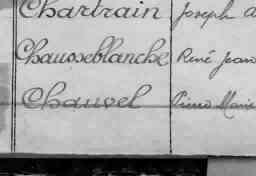 Chartrain Joseph
Chausseblanche René Jean
Chauvel Pierre Marie